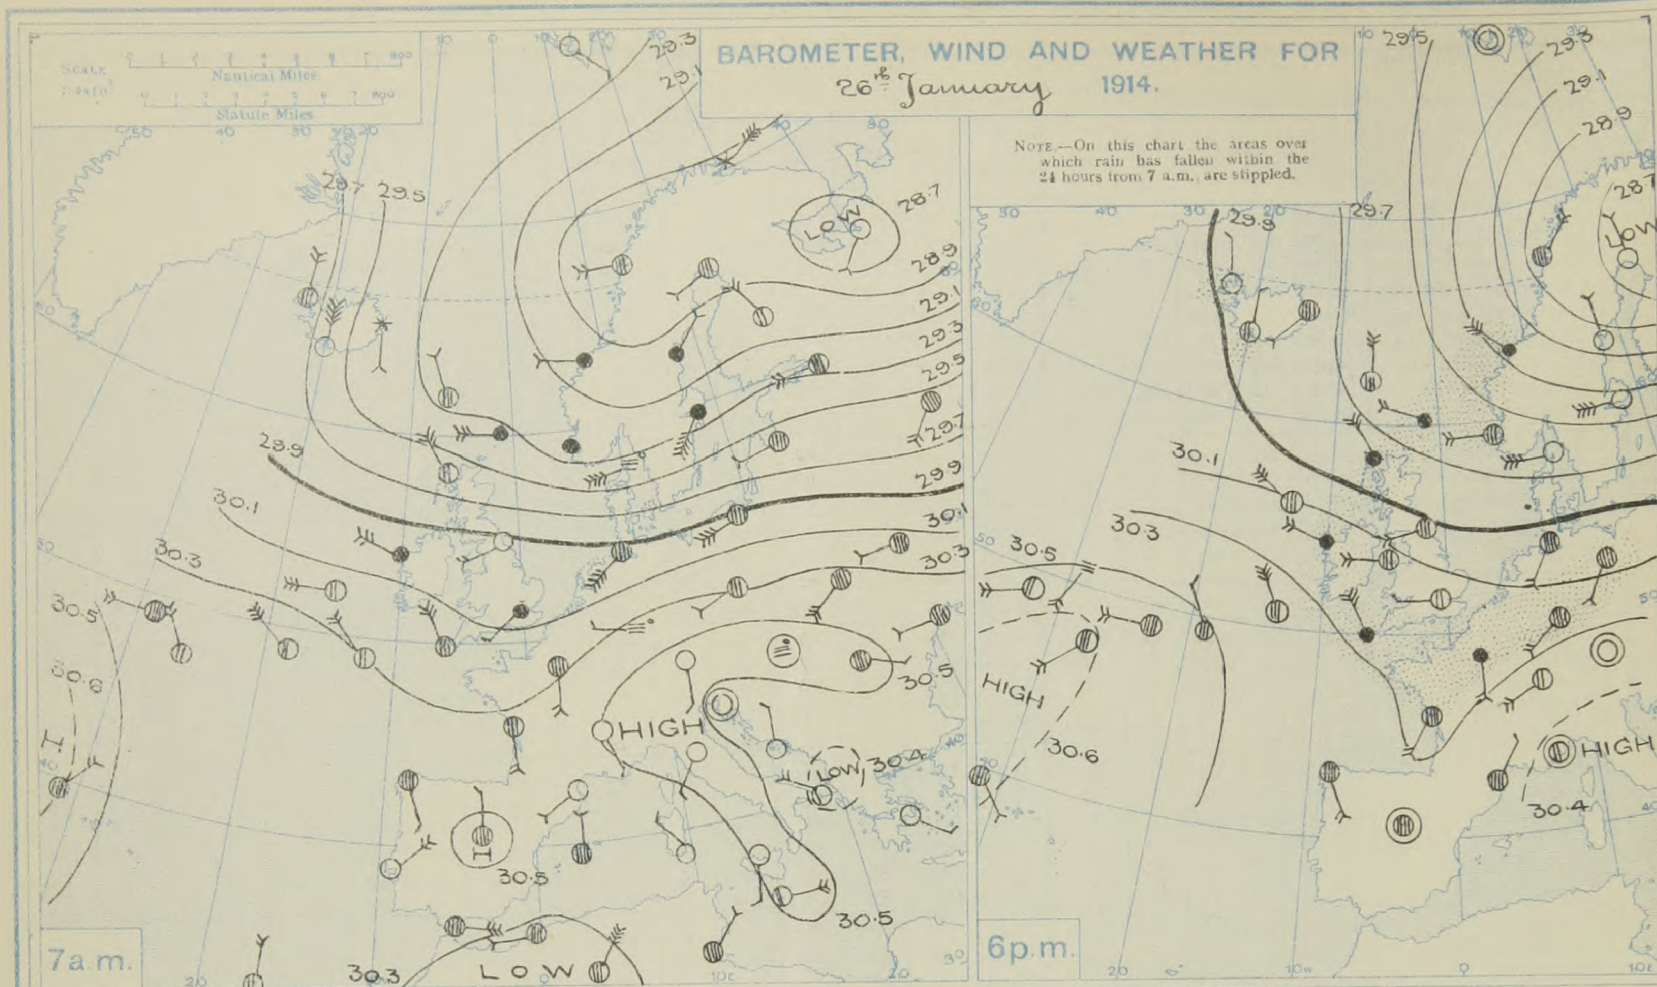 BAROMETER, WIND AND WEATHER FOR
26th January 1914.
NOTE.—On this chart the areas over
which rain has fallen within the
24 hours from 7 a.m. are stippled.
SCALE
Nautical Miles
Statute Miles
29.3
29.1
29.7
29.5
LOW
28.7
28.9
29.1
29.3
29.5
29.7
29.9
29.9
30.1
30.1
30.3
30.3
30.5
30.5
HIGH
LOW
30.4
30.5
30.5
30.3
LOW
7a.m.
29.5
29.3
29.1
28.9
28.7
LOW
29.9
29.7
30.1
30.3
30.5
HIGH
30.6
HIGH
30.4
6p.m.